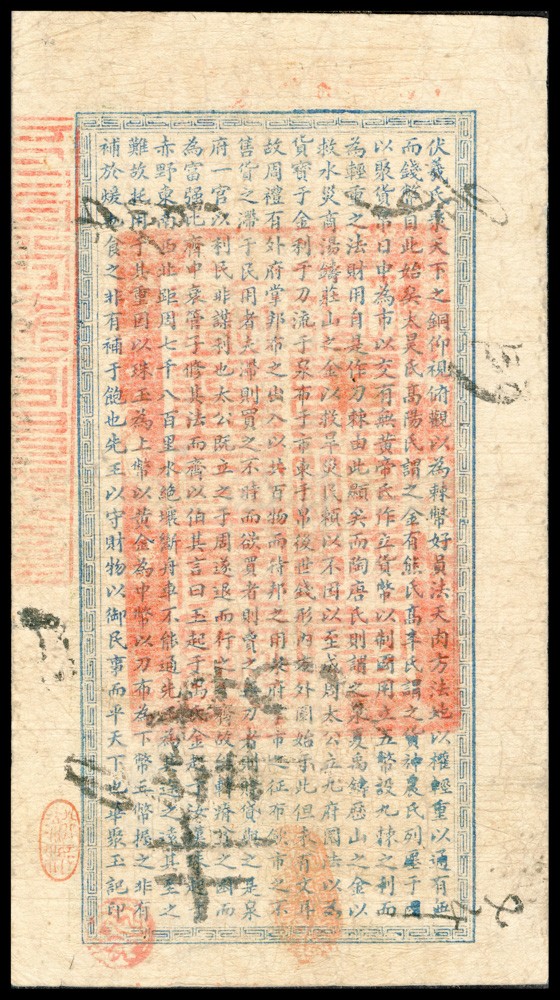 伏羲氏聚天下之銅仰視俯觀以為棘幣好員法天肉方法地以權輕重以通有無
而錢幣自此始矣太昊氏高陽氏謂之金有熊氏高辛氏謂之貨神農氏列廛于國
以聚貨帛日中為市以交有無黃帝氏作立貨幣以制國用立五幣設九棘之利而
為輕重之法財用自是作刀棘由此顯矣而陶唐氏則謂之泉夏禹鑄歷山之金以
救水災商湯鑄莊山之金以救旱災民賴以不困以至成周太公立九府圜法以為
貨寶于金利于刀流于泉布于布束于帛後世錢形內方外圓始于此但未有文耳
故周禮有外府掌邦布之出入以共百物而待邦之用泉府掌市之征布斂市之不
售貨之滯于民用者夫滯則買之不時而欲買者則賣之無力者則賒貸與之是泉
府一官以利民非謀利也太公既立之于周遂退而行之于齊故能轉瘠
為富強比齊中衰管子修其法而齊以伯其言曰玉起于禺氏金起于汝漢珠起
赤野東南西北距周七千八百里水絕壤斷舟車不能通先王為其途之遠其至之
難故托用于其重因以珠玉為上幣以黃金為中幣以刀布為下幣三幣握之非有
補於煖也食之非有補于飽也先王以守財物以御民事而平天下也華聚玉記印